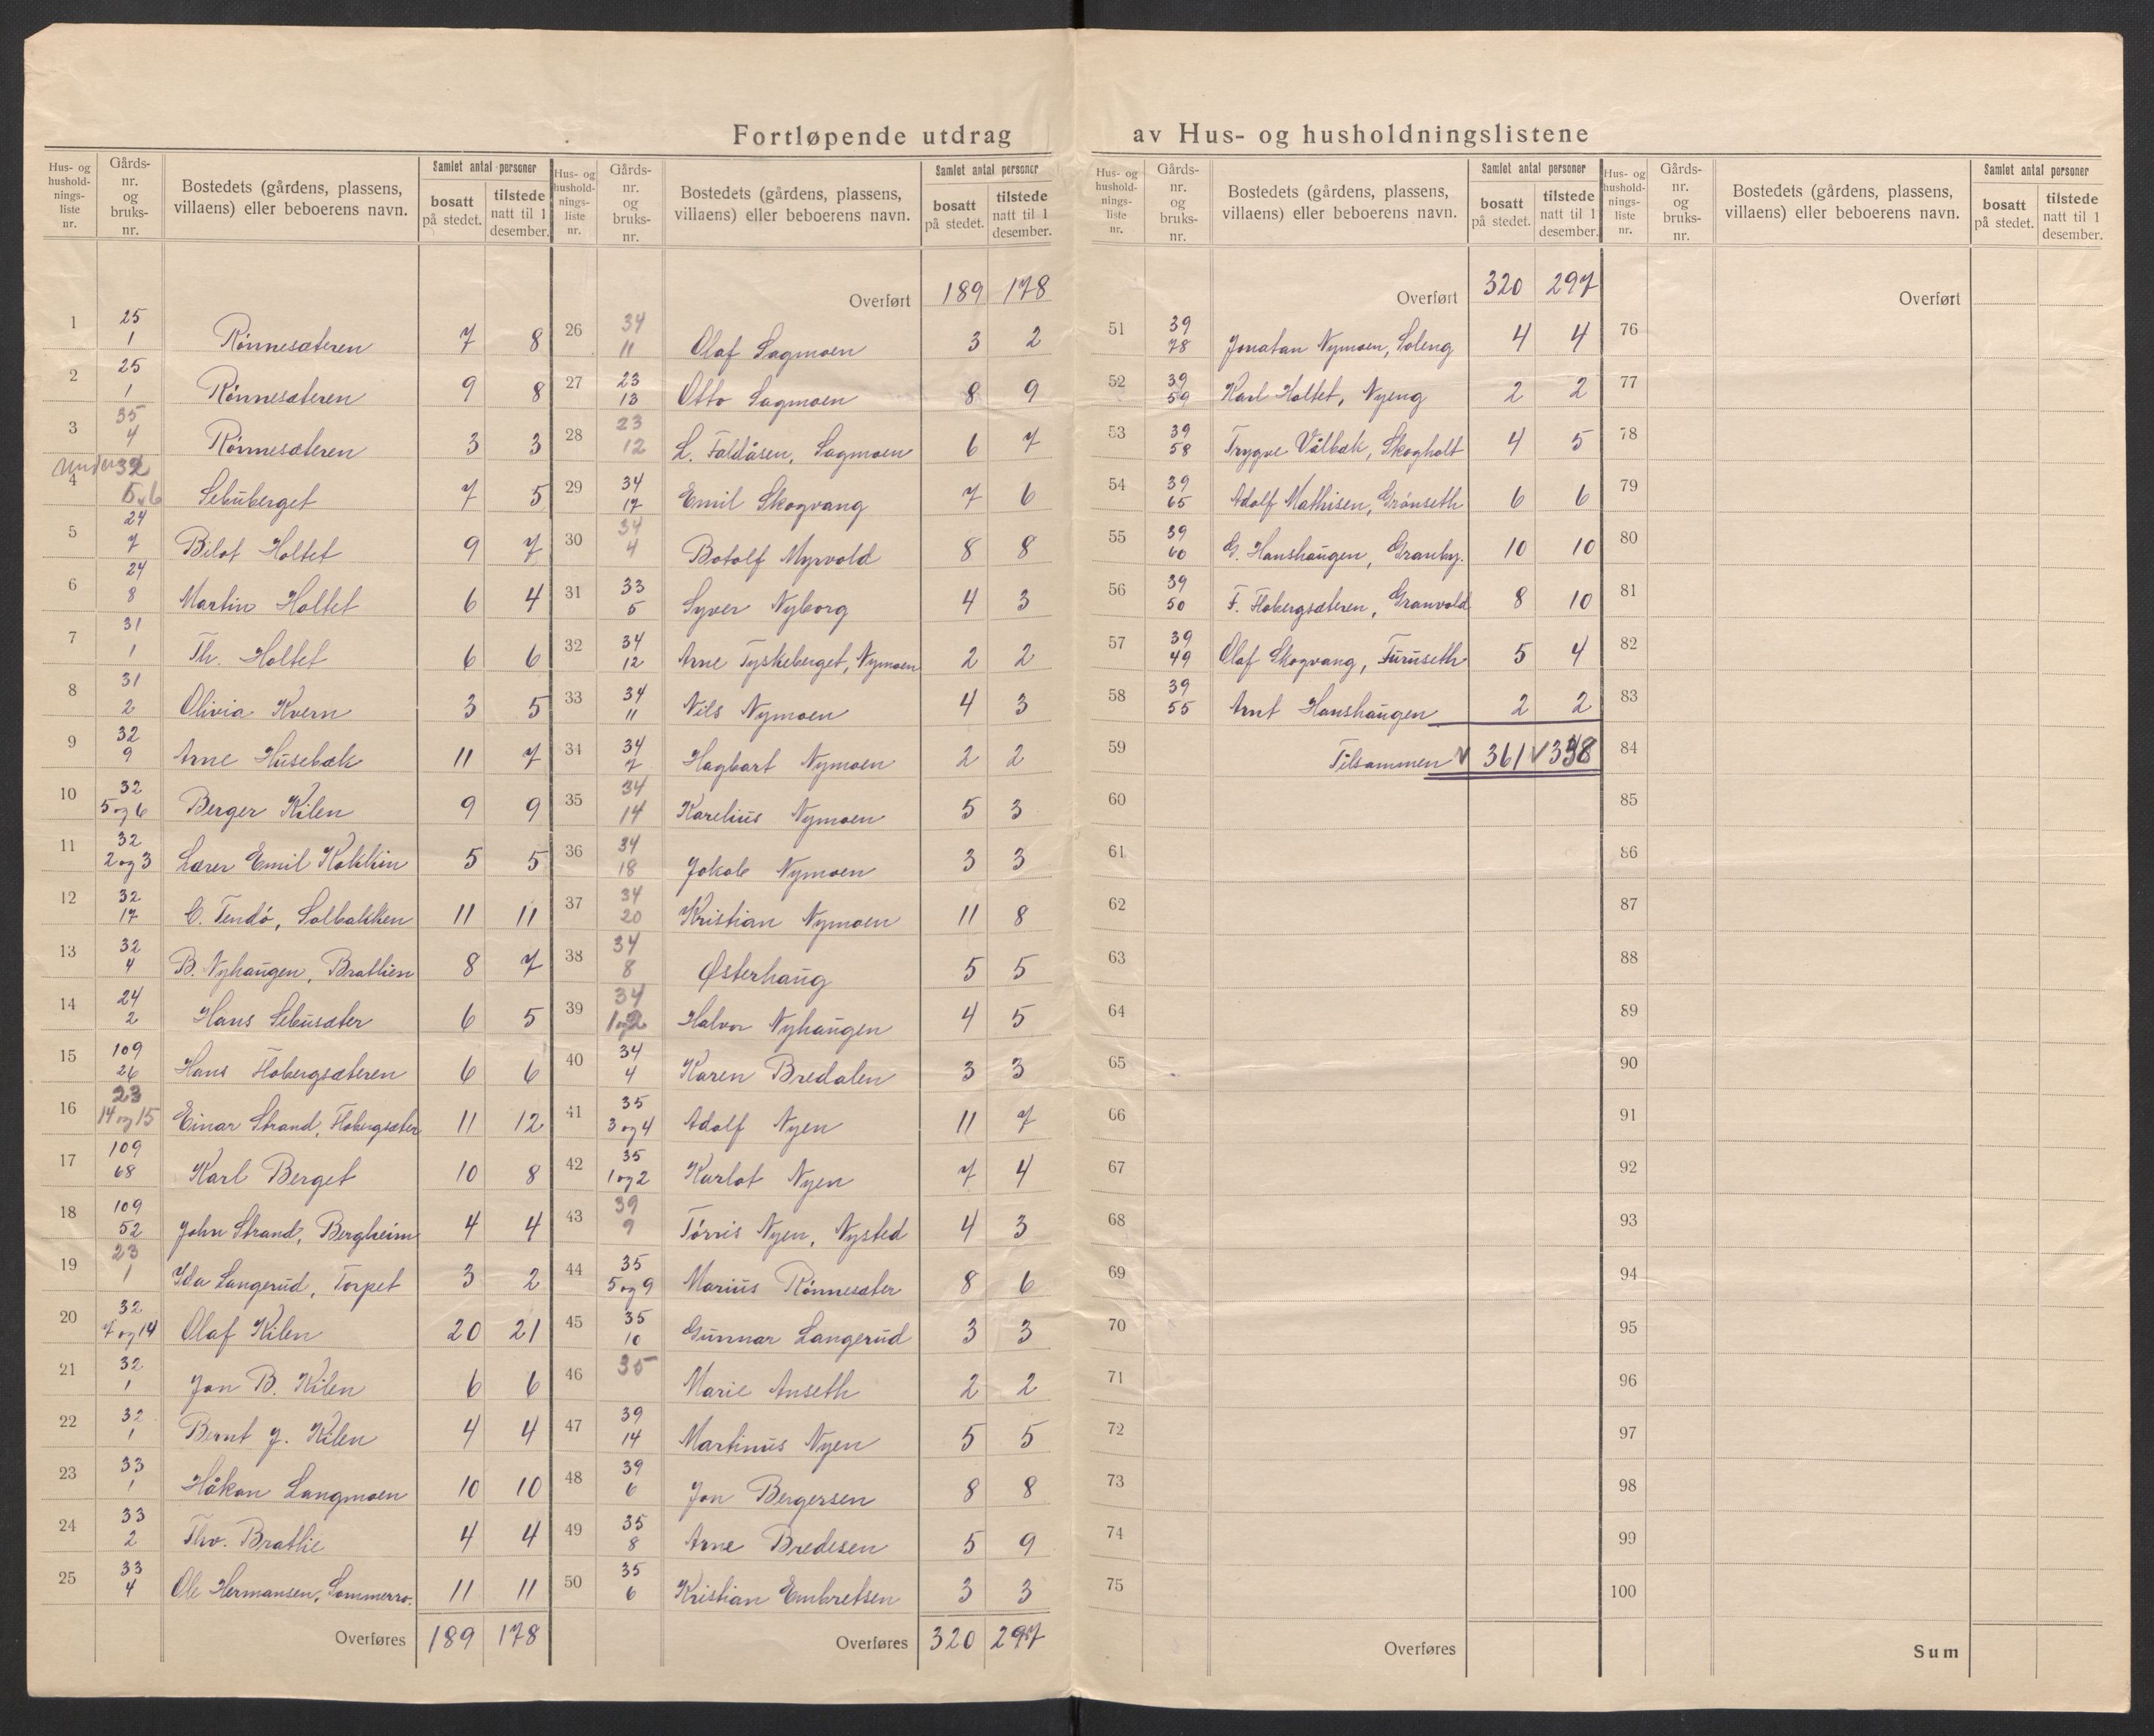 Fortløpende utdrag av Hus- og husholdningslistene
Hus- og husholdnings-liste nr. | Gårds-nr. og bruks-nr. | Bostedets (gårdens, plassens, villaens) eller beboerens navn. | Samlet antal personer bosatt på stedet. | tilstede natt til 1 desember.
1 | 25 1 | Rönnesæteren | 7 | 8
2 | 25 1 | Rönnesæteren | 9 | 8
3 | 35 4 | Rönnesæteren | 3 | 3
4 | under 32 5 og 6 | Sebuberget | 7 | 5
5 | 24 7 | Belot Holtet | 9 | 7
6 | 24 8 | Martin Holtet | 6 | 4
7 | 31 1 | Th. Holtet | 6 | 6
8 | 31 2 | Olivia Kvern | 3 | 5
9 | 32 9 | Arne Husebæk | 11 | 7
10 | 32 5 og 6 | Berger Kilen | 9 | 9
11 | 32 2 og 3 | Lærer Emil Kokkin | 5 | 5
12 | 32 17 | C. Tendö, Solbakken | 11 | 11
13 | 32 4 | B. Nyhaugen, Bratlien | 8 | 7
14 | 24 2 | Hans Sebusæter | 6 | 5
15 | 109 26 | Hans Flobergsæteren | 6 | 6
16 | 23 14 og 15 | Einar Strand, Flobergsæter | 11 | 12
17 | 109 68 | Karl Berget | 10 | 8
18 | 109 52 | John Strand, Bergheim | 4 | 4
19 | 23 1 | Ida Langerud, Torpet | 3 | 2
20 | 32 7 og 14 | Olaf Kilen | 20 | 21
21 | 32 1 | Jon B. Kilen | 6 | 6
22 | 32 1 | Bernt J. Kilen | 4 | 4
23 | 33 1 | Håkon Langmoen | 10 | 10
24 | 33 2 | Thv. Bratlie | 4 | 4
25 | 33 4 | Ole Hermansen, Sommerro. | 11 | 11
Overføres | 189 | 178
Hus- og husholdnings-liste nr. | Gårds-nr. og bruks-nr. | Bostedets (gårdens, plassens, villaens) eller beboerens navn. | Samlet antal personer bosatt på stedet. | tilstede natt til 1 desember.
Overført | 189 | 178
26 | 34 11 | Olaf Sagmoen | 3 | 2
27 | 23 13 | Otto Sagmoen | 8 | 9
28 | 23 12 | L. Faldåsen, Sagmoen | 6 | 7
29 | 34 17 | Emil Skogvang | 7 | 6
30 | 34 4 | Botolf Myrvold | 8 | 8
31 | 33 5 | Syver Nyborg | 4 | 3
32 | 34 12 | Arne Tyskeberget, Nymoen | 2 | 2
33 | 34 11 | Nils Nymoen | 4 | 3
34 | 34 7 | Hagbart Nymoen | 2 | 2
35 | 34 14 | Karelius Nymoen | 5 | 3
36 | 34 18 | Jakob Nymoen | 3 | 3
37 | 34 20 | Kristian Nymoen | 11 | 8
38 | 34 8 | Østerhaug | 5 | 5
39 | 34 1 og 2 | Halvor Nyhaugen | 4 | 5
40 | 34 4 | Karen Bredalen | 3 | 3
41 | 35 3 og 4 | Adolf Nyen | 11 | 7
42 | 35 1 og 2 | Karlot Nyen | 7 | 4
43 | 39 9 | Törris Nyen, Nysted | 4 | 3
44 | 35 5 og 9 | Marius Rönnesæter | 8 | 6
45 | 35 10 | Gunnar Langerud | 3 | 3
46 | 35 | Marie Anseth | 2 | 2
47 | 39 14 | Martinus Nyen | 5 | 5
48 | 39 6 | Jon Bergersen | 8 | 8
49 | 35 8 | Arne Bredesen | 5 | 9
50 | 35 6 | Kristian Embretsen | 3 | 3
Overføres | 320 | 297
Hus- og husholdnings-liste nr. | Gårds-nr. og bruks-nr. | Bostedets (gårdens, plassens, villaens) eller beboerens navn. | Samlet antal personer bosatt på stedet. | tilstede natt til 1 desember.
Overført | 320 | 297
51 | 39 78 | Jonatan Nymoen, Soleng | 4 | 4
52 | 39 59 | Karl Holtet, Nyeng | 2 | 2
53 | 39 58 | Trygve Vålbæk, Skogholt | 4 | 5
54 | 39 65 | Adolf Mathisen, Grönseth | 6 | 6
55 | 39 60 | G. Hanshaugen, Granby. | 10 | 10
56 | 39 50 | F. Flobergsæteren, Granvold | 8 | 10
57 | 39 49 | Olaf Skogvang, Furuseth | 5 | 4
58 | 39 55 | Arnt Hanshaugen | 2 | 2
59 | Tilsammen | 361 | 338
60
61
62
63
64
65
66
67
68
69
70
71
72
73
74
75
Overføres
Hus- og husholdnings-liste nr. | Gårds-nr. og bruks-nr. | Bostedets (gårdens, plassens, villaens) eller beboerens navn. | Samlet antal personer bosatt på stedet. | tilstede natt til 1 desember.
Overført
76
77
78
79
80
81
82
83
84
85
86
87
88
89
90
91
92
93
94
95
96
97
98
99
100
Sum